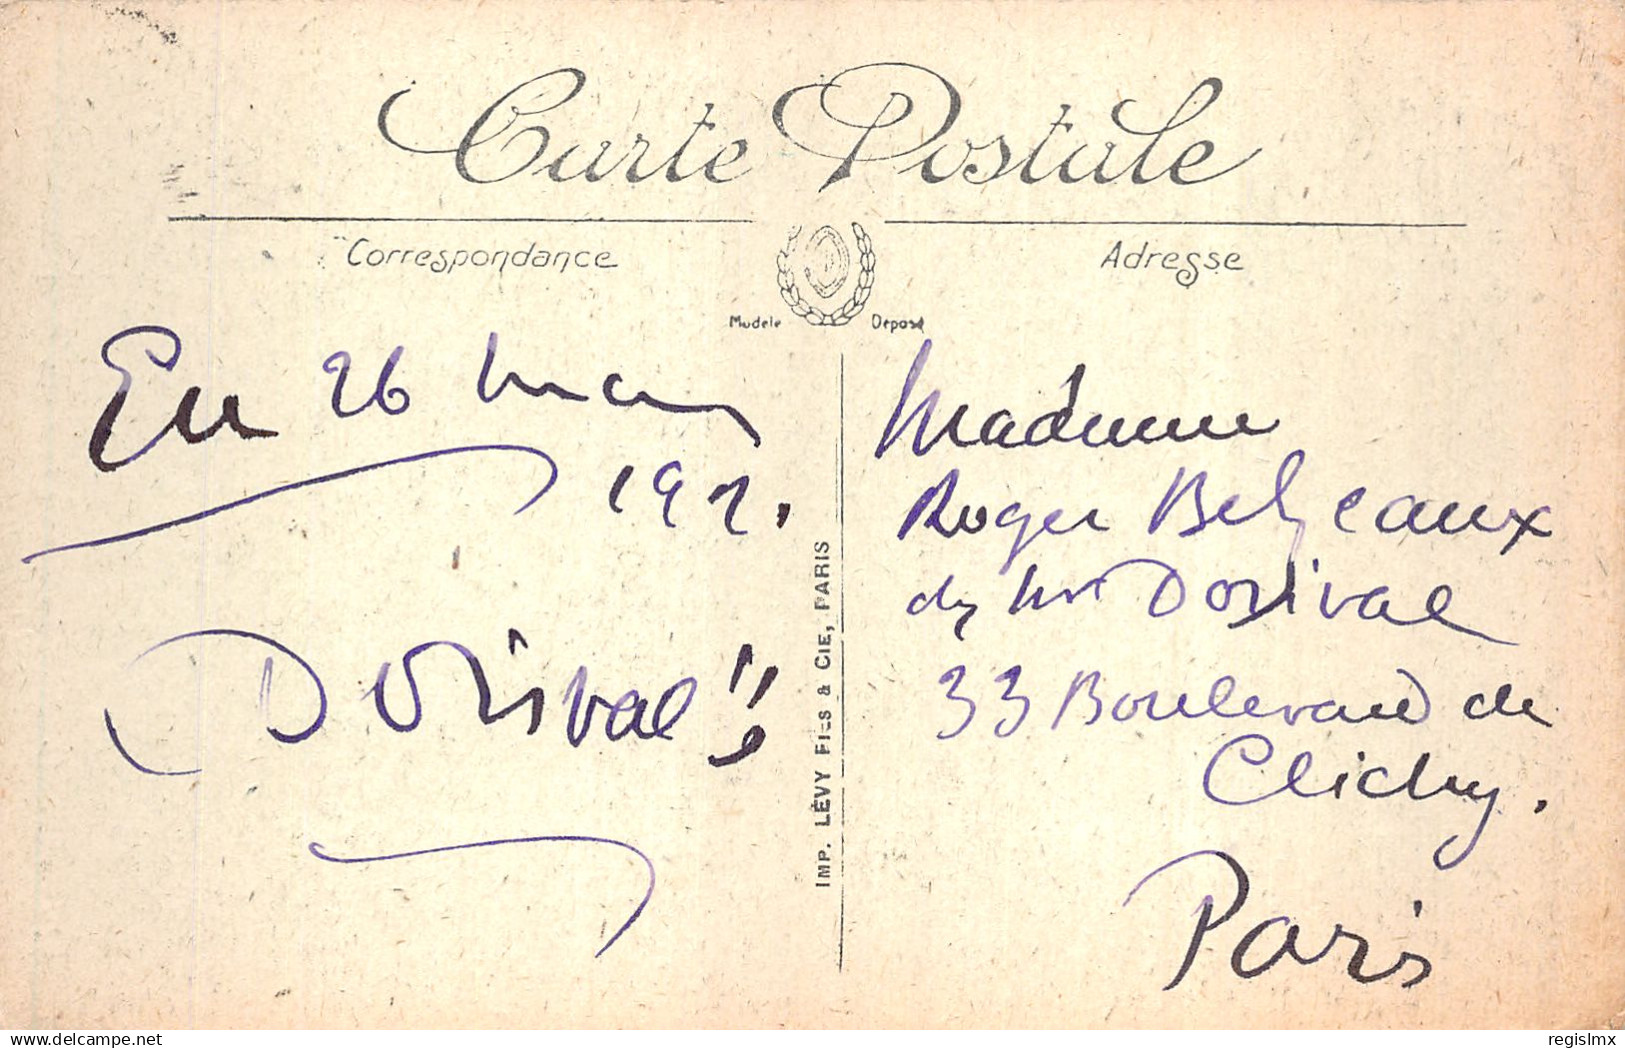 Carte Postale
Correspondance
Adresse
Modèle Déposé
En 26 mars
192.
Dorival
IMP. LÉVY FILS & CIE, PARIS
Madame
Roger Belzeaux
chez Mr Dorival
33 Boulevard de
Clichy.
Paris
delcampe.net
regislmx